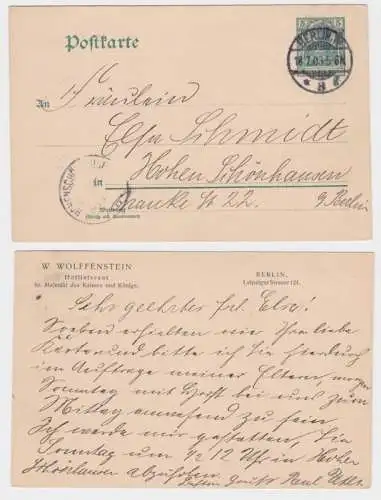 Postkarte
5
BERLIN, W.
18.7.03. 5-6N
* 8 *
An Fräulein
Elsa Schmidt
in Hohen Schönhausen
Wohnung
22. b/Berlin
W. WOLFFENSTEIN
Hoflieferant
Sr. Majestät des Kaisers und Königs.
BERLIN,
Leipziger Strasse 121.
Sehr geehrtes Frl. Else!
Soeben erhielten wir Ihre liebe
Karte und bitte ich Sie hierdurch
im Auftrage meiner Eltern, morgen
Sonntag mit Horst bei uns zum
Mittag anwesend zu sein
Ich werde mir gestatten, Sie
Sonntag um ½ 12 Uhr in Hohen
Schönhausen abzuholen.
Gruß Paul